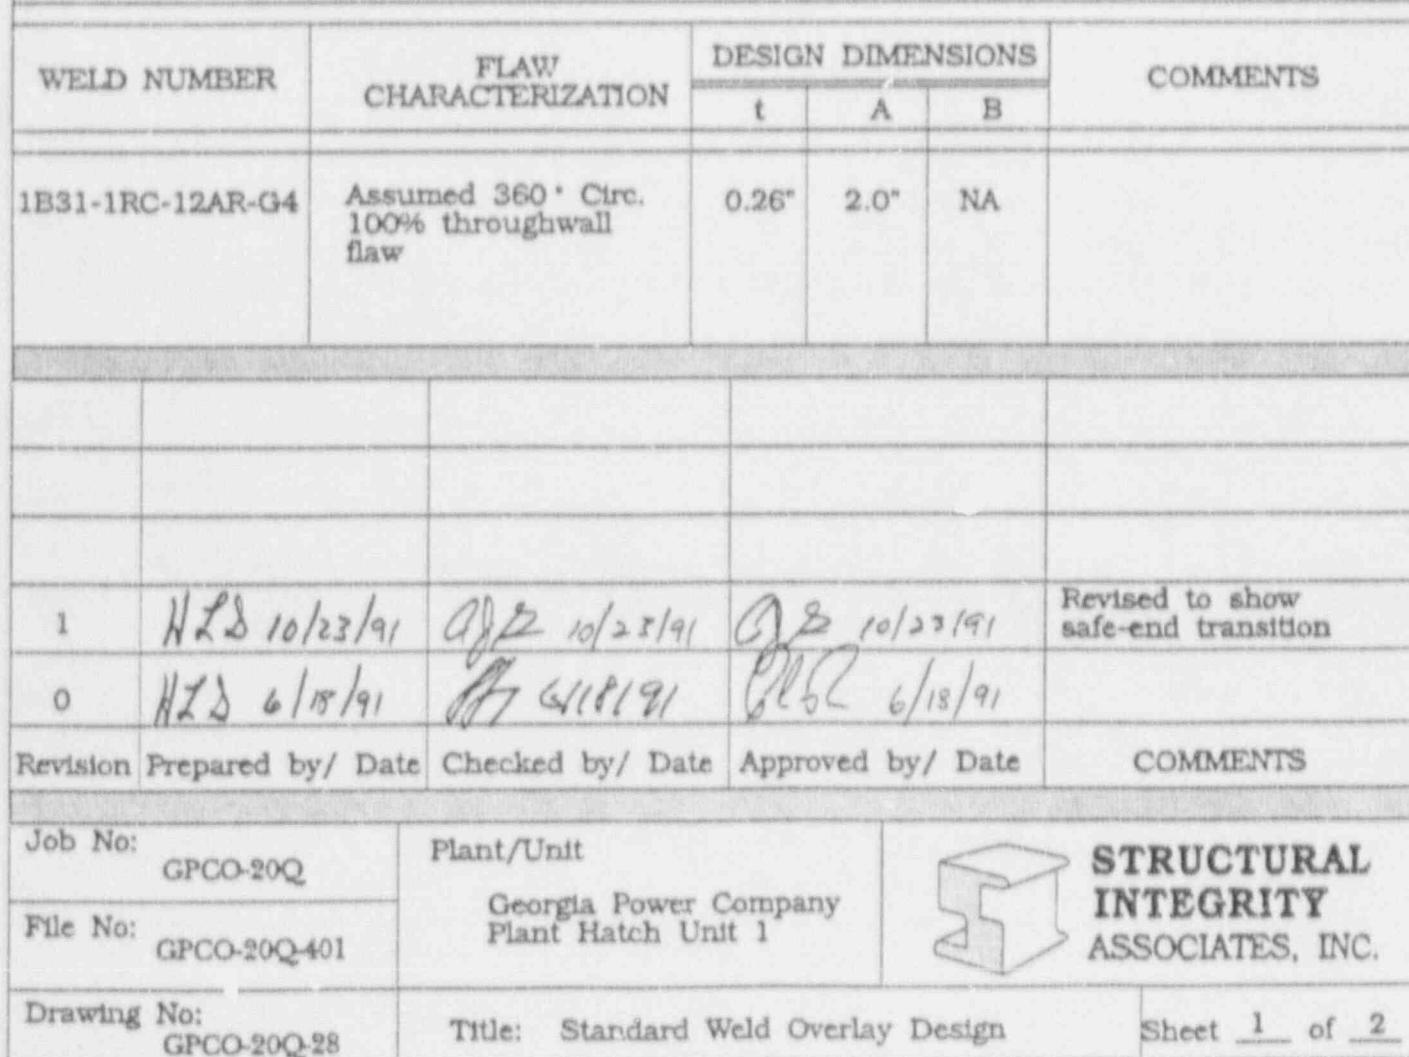 WELD NUMBER
FLAW
CHARACTERIZATION
DESIGN DIMENSIONS
t A B
COMMENTS
1B31-1RC-12AR-G4
Assumed 360° Circ.
100% throughwall
flaw
0.26" 2.0" NA
1 HLS 10/23/91 10/23/91 10/23/91
Revised to show
safe-end transition
0 HLS 6/18/91 6/18/91 6/18/91
Revision Prepared by/ Date Checked by/ Date Approved by/ Date COMMENTS
Job No:
GPCO-20Q
File No:
GPCO-20Q-401
Drawing No:
GPCO-20Q-28
Plant/Unit
Georgia Power Company
Plant Hatch Unit 1
STRUCTURAL
INTEGRITY
ASSOCIATES, INC.
Title: Standard Weld Overlay Design
Sheet 1 of 2